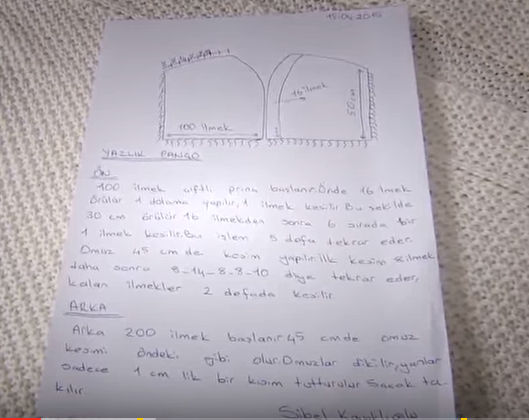 15.04.2015
16 ilmek
50 cm
100 ilmek
YAZLIK PANÇO
ÖN
100 ilmek çiftli prinç başlanır. Önde 16 ilmek
örülür 1 dolama yapılır, 1 ilmek kesilir. Bu şekilde
30 cm örülür 16 ilmekden sonra 6 sırada bir
1 ilmek kesilir. Bu işlem 5 defa tekrar eder.
Omuz 45 cm de kesim yapılır. İlk kesim 8 ilmek
daha sonra 8-14-8-8-10 diye tekrar eder,
kalan ilmekler 2 defada kesilir
ARKA
Arka 200 ilmek başlanır 45 cm de omuz
kesimi öndeki gibi olur. Omuzlar dikilir, yanlar
sadece 1 cm lik bir kısım tutturulur. Saçak ta-
kılır.
Sibel